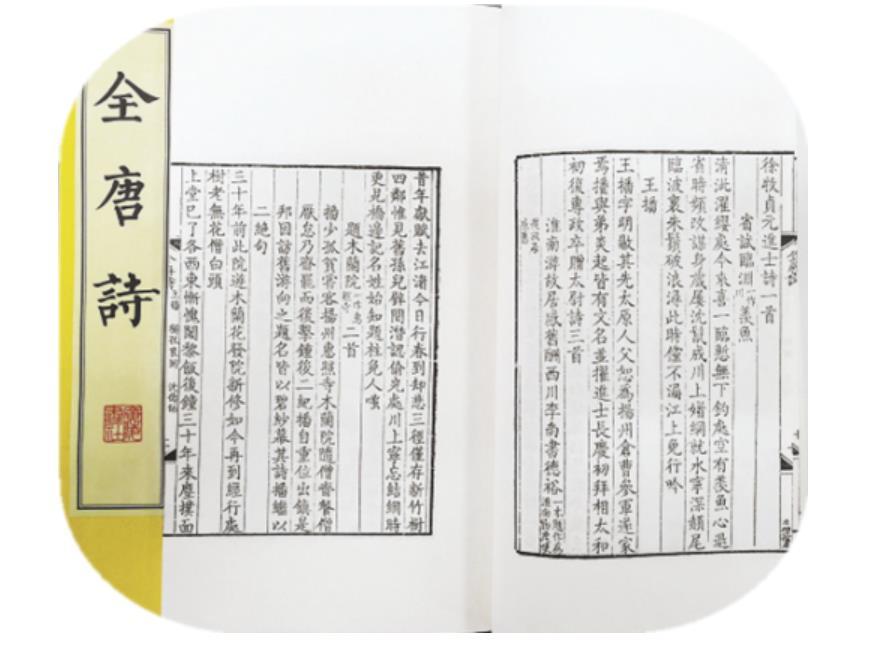 全唐詩
徐牧貞元進士詩一首
省試臨淵一作川羨魚
清泚濯纓處今來喜一臨慙無下釣處空有羨魚心退
省時頻改謀身歲屢沈鬚成川上媿網就水寧深頳尾
臨波裏朱鬚破浪潯此時儻不漏江上免行吟
王播
王播字明敭其先太原人父恕為揚州倉曹參軍遂家
焉播與弟炎起皆有文名並擢進士長慶初拜相太和
初復專政卒贈太尉詩三首
淮南游故居感舊酬西川李尚書德裕一本題作
昔年獻賦去江湄今日行春到却悲三徑僅存新竹樹
四鄰惟見舊孫兒壁間潛認偷光處川上寧忘結網時
更見橋邊記名姓始知題柱免人嗤
題木蘭院一作惠照寺二首
播少孤貧嘗客揚州惠照寺木蘭院隨僧齋餐僧
厭怠乃齋罷而後擊鐘後二紀播自重位出鎮是
邦因訪舊游向之題名皆以碧紗幕其詩播繼以
二絕句
三十年前此院遊木蘭花發院新修如今再到經行處
樹老無花僧白頭
上堂已了各西東慚愧闍黎飯後鐘三十年來塵撲面